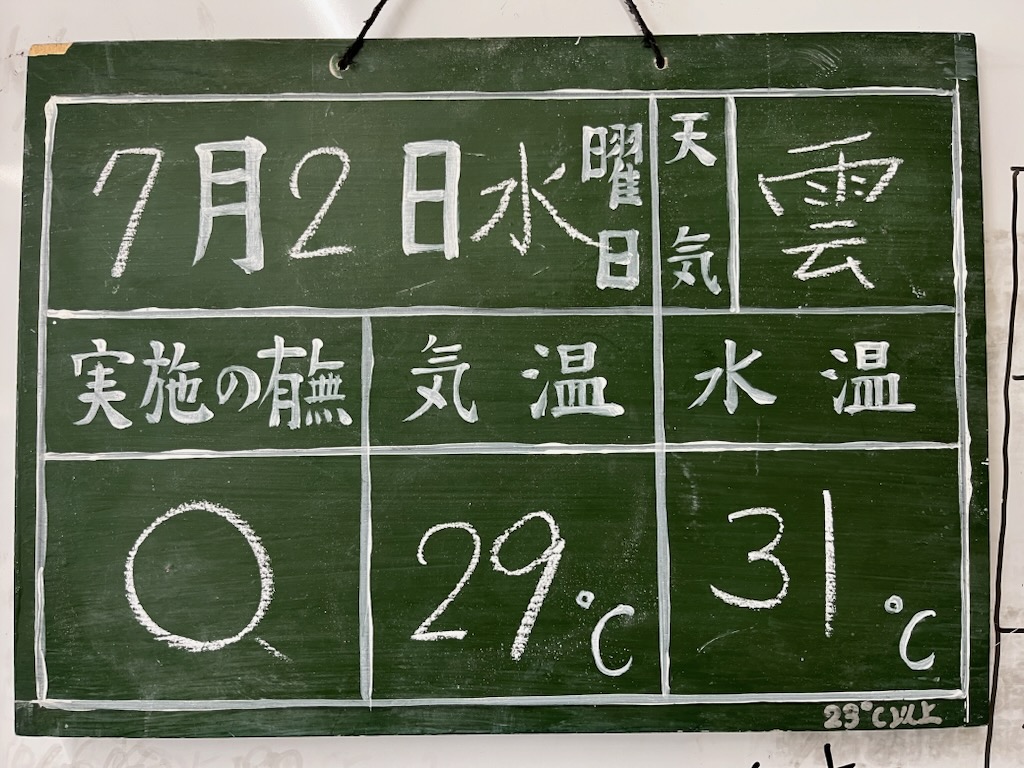 7月2日水曜日 天気 雲
実施の有無 気温 水温
○ 29℃ 31℃
23℃以上